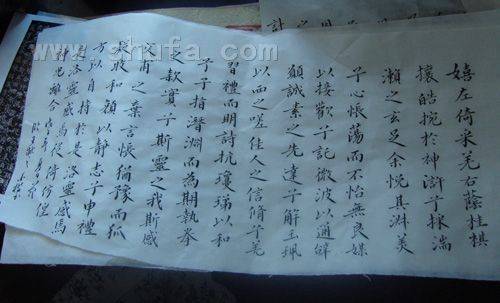 www.shufa.com
嬉左倚采旄右蔭桂棋
攘皓捥於神滸兮採湍
瀨之玄芝余悅其淑美
兮心悵蕩而不怡無良媒
以接歡兮託微波以通辭
願誠素之先達兮解玉珮
以而之嗟佳人之信脩兮羌
習禮而明詩抗瓊珶以和
予兮指潛淵而為期執拳
之款實兮斯靈之我斯感
交甫之棄言悵猶豫而狐
疑收和顏以靜志兮申禮
方以自持於是洛靈感焉
洛靈感焉徙倚徨
神光離合